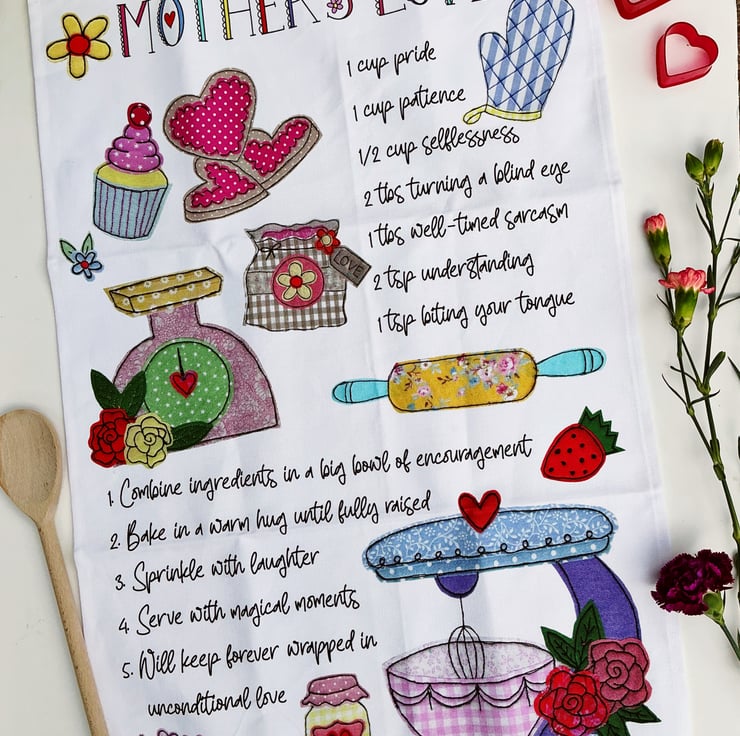 MOTHER'S
1 cup pride
1 cup patience
1/2 cup selflessness
2 tbs turning a blind eye
1 tbs well-timed sarcasm
2 tsp understanding
1 tsp biting your tongue
LOVE
1. Combine ingredients in a big bowl of encouragement
2. Bake in a warm hug until fully raised
3. Sprinkle with laughter
4. Serve with magical moments
5. Will keep forever wrapped in
unconditional love